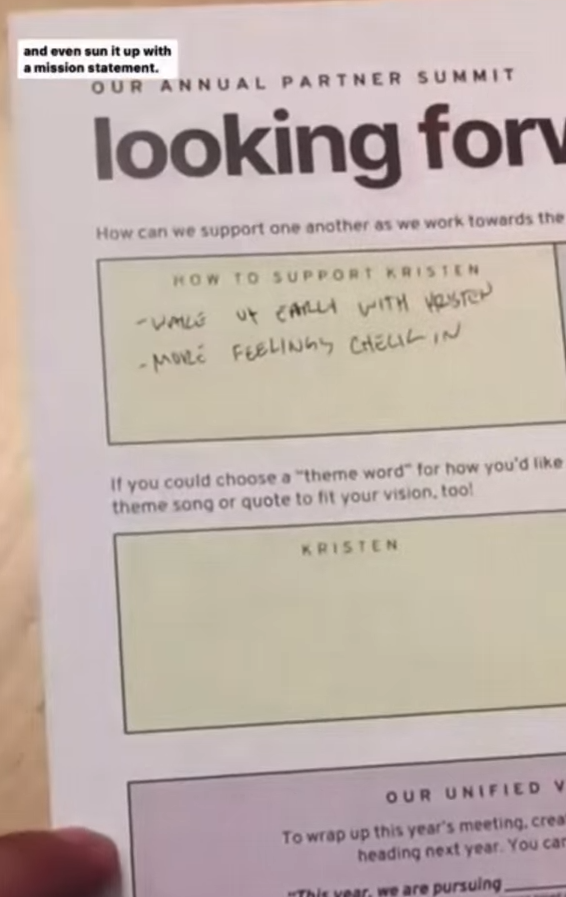 and even sun it up with
a mission statement.
OUR ANNUAL PARTNER SUMMIT
looking forw
How can we support one another as we work towards the
HOW TO SUPPORT KRISTEN
-WAKE UP EARLY WITH KRISTEN
-MORE FEELINGS CHECK IN
If you could choose a "theme word" for how you'd like
theme song or quote to fit your vision, too!
KRISTEN
OUR UNIFIED V
To wrap up this year's meeting, crea
heading next year. You can
"This year, we are pursuing